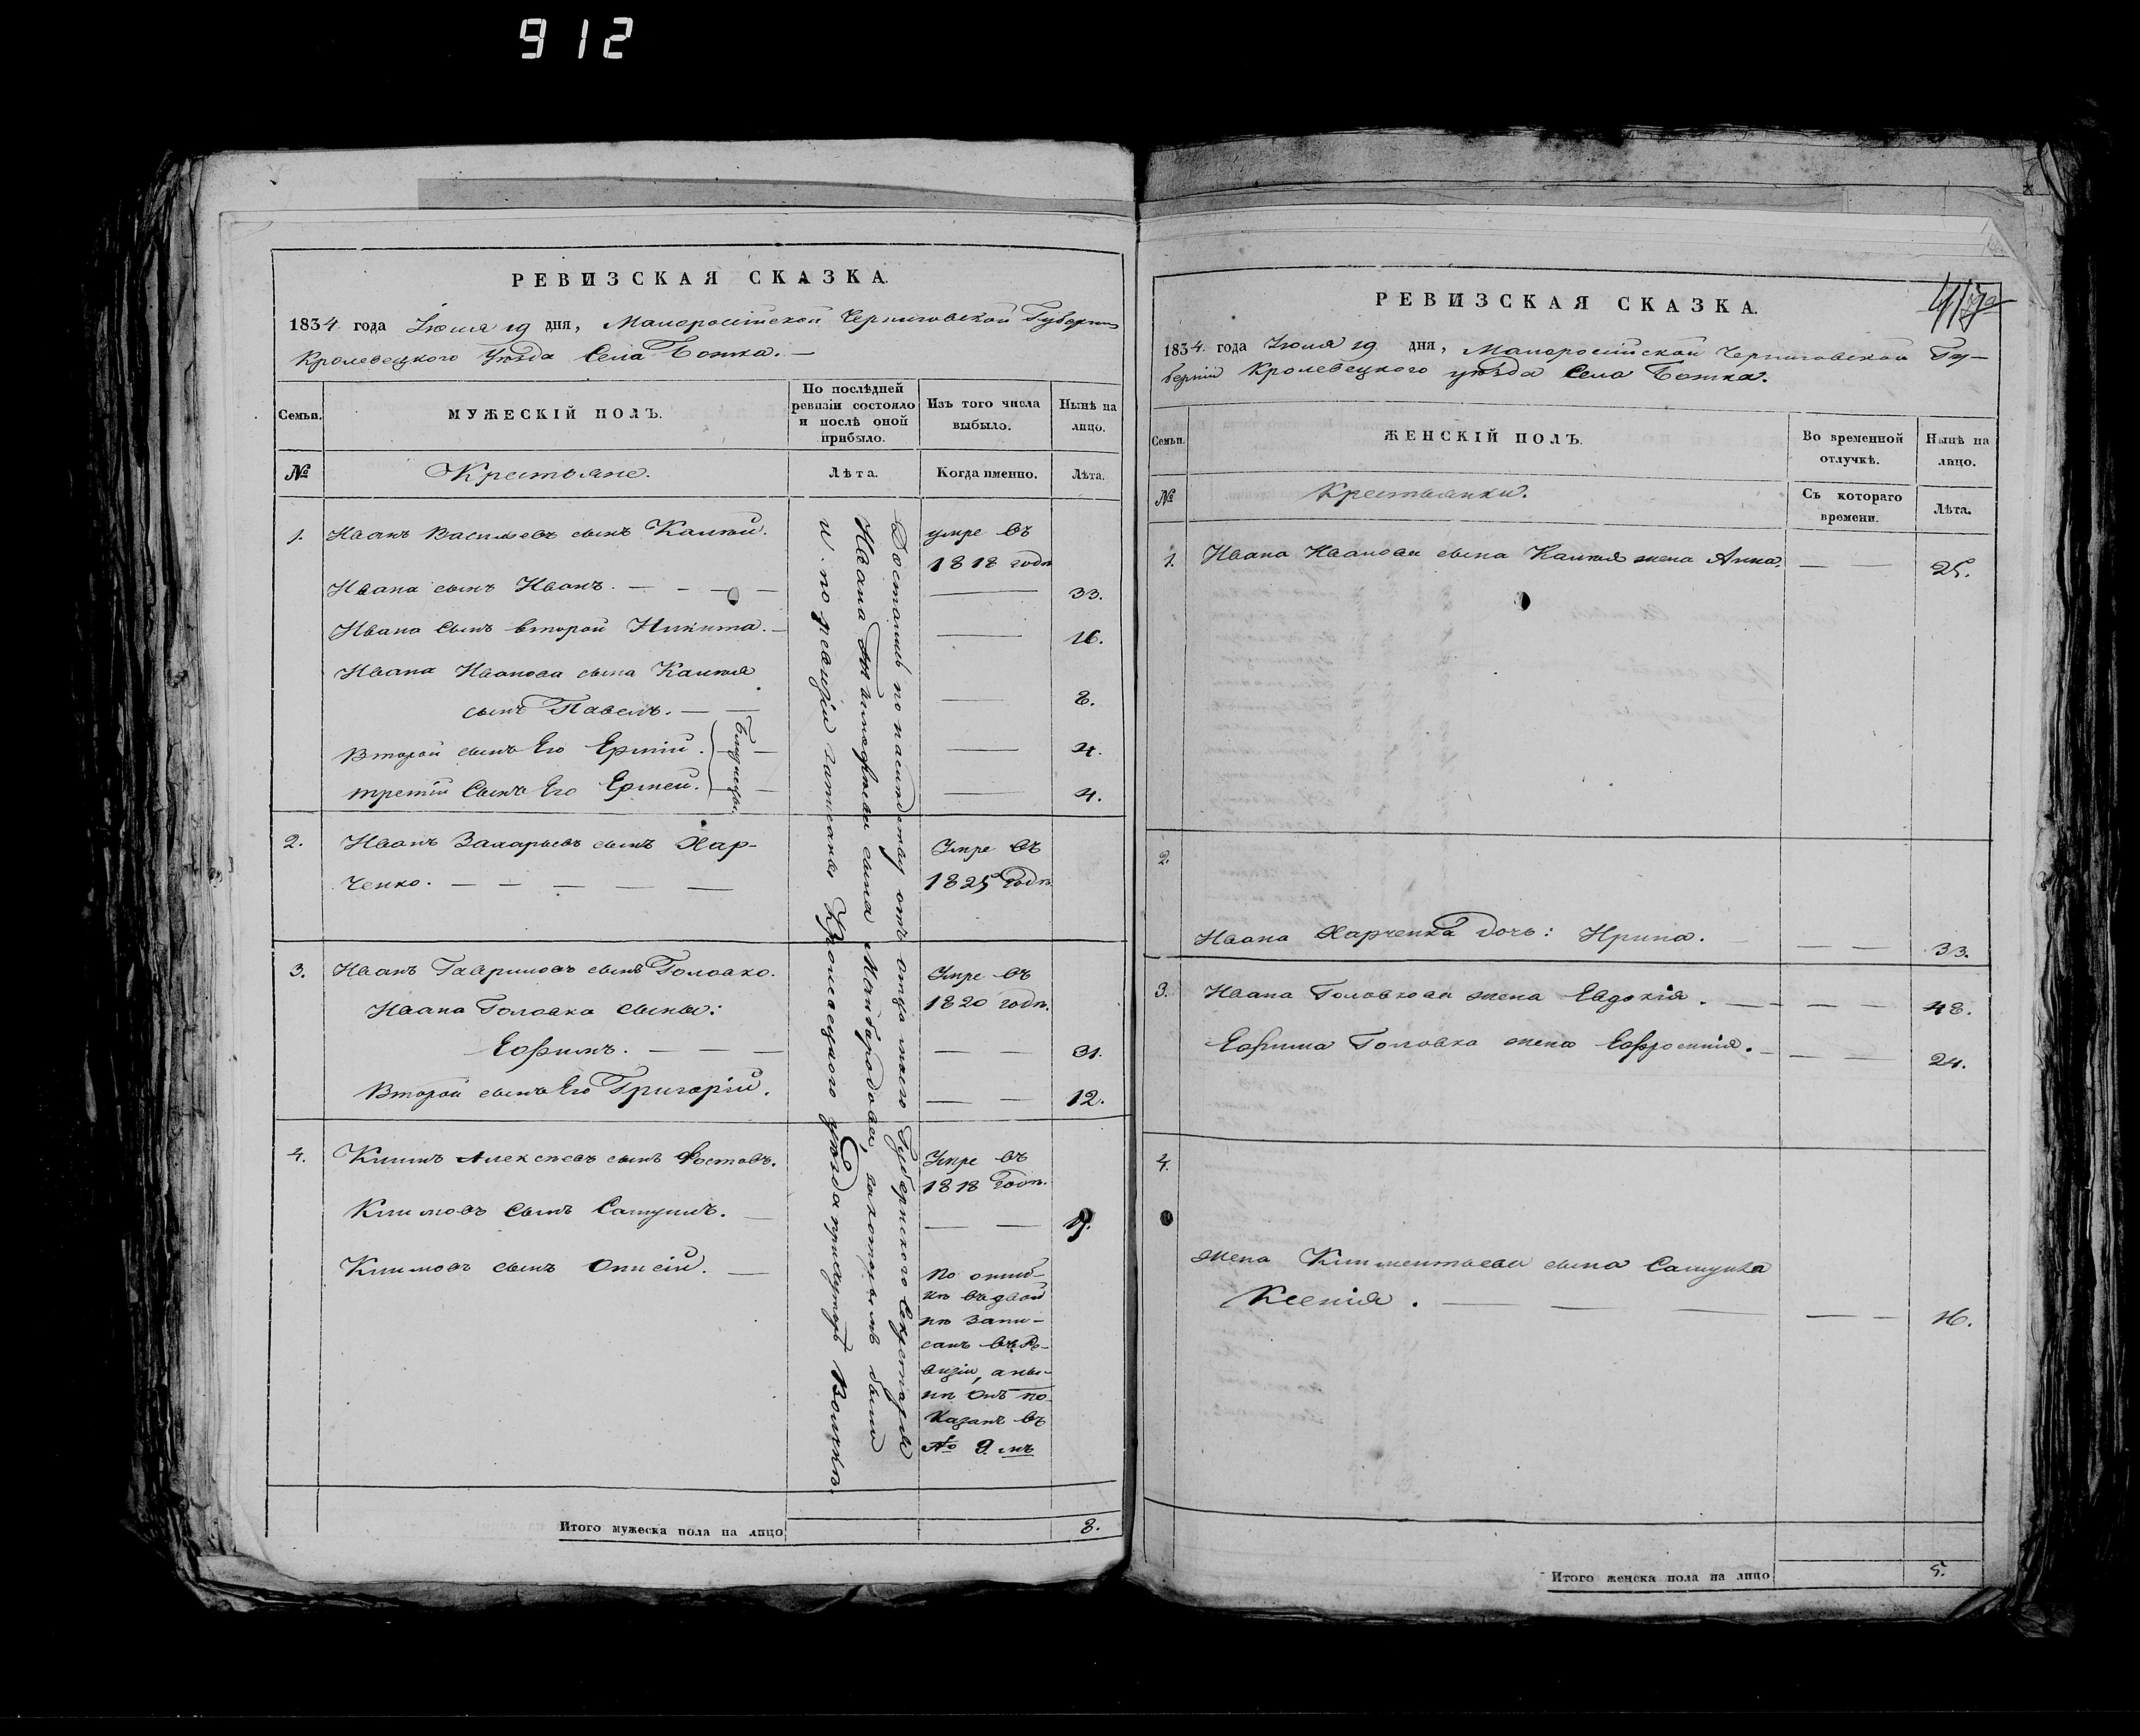 912
РЕВИЗСКАЯ СКАЗКА.
1834 года Іюля 19 дня, Малоросійской Черниговской Губерніи
Кролевецкого Уѣзда Села Божка. —
Семьи.
МУЖЕСКІЙ ПОЛЪ.
По послѣдней
ревизіи состояло
и послѣ оной
прибыло.
Изъ того числа
выбыло.
Нынѣ на
лицо.
№
Крестьяне.
Лѣта.
Когда именно.
Лѣта.
1. Иванъ Васильевъ сынъ
умре въ
1818 годѣ
Ивана сынъ Иванъ. — 33.
Ивана сынъ второй Никита. — 16.
Ивана Иванова сына
сынъ Павелъ. — 8.
Второй сынъ Его — 4.
третій Сынъ Его — 4.
Близнецы.
2. Иванъ Захарьевъ сынъ Хар-
ченко. —
Умре въ
1825 годѣ
3. Иванъ Гавриловъ сынъ Головко.
Умре въ
1820 годѣ.
Ивана Головка сыны:
Ефимъ. — 31.
Второй сынъ Его Григорій. 12.
4. Климъ Алексѣевъ сынъ
Умре въ
1818 Годѣ.
Климовъ Сынъ Самуилъ. — 19.
Климовъ сынъ —
По ошиб-
кѣ въ двой
нѣ запи-
санъ въ Ре-
визіи, а ны-
нѣ Онъ по
казанъ въ
№ 9.мъ
Достались по наслѣдству отъ отца моего Губернского Секретаря
Ивана сына за которымъ были
и по ревизіи записаны Кролевецкого уѣзда
Итого мужеска пола на лицо 8.
РЕВИЗСКАЯ СКАЗКА.
1834. года Іюля 19 дня, Малоросійской Черниговской Гу-
берніи Кролевецкого уѣзда Села Божка.
Семьи.
ЖЕНСКІЙ ПОЛЪ.
Во временной
отлучкѣ.
Нынѣ на
лицо.
№
Крестьянки.
Съ котораго
времени.
Лѣта.
1. Ивана Иванова сына жена Анна. — — 25.
2.
Ивана Харченка дочь: Ирина. — — 33.
3. Ивана Головкова жена Евдокія. — — 48.
Ефима Головка жена Ефросинія. — — 24.
4.
жена Климентьева сына Самуила
Ксенія. — — — 16.
Итого женска пола на лицо 5.